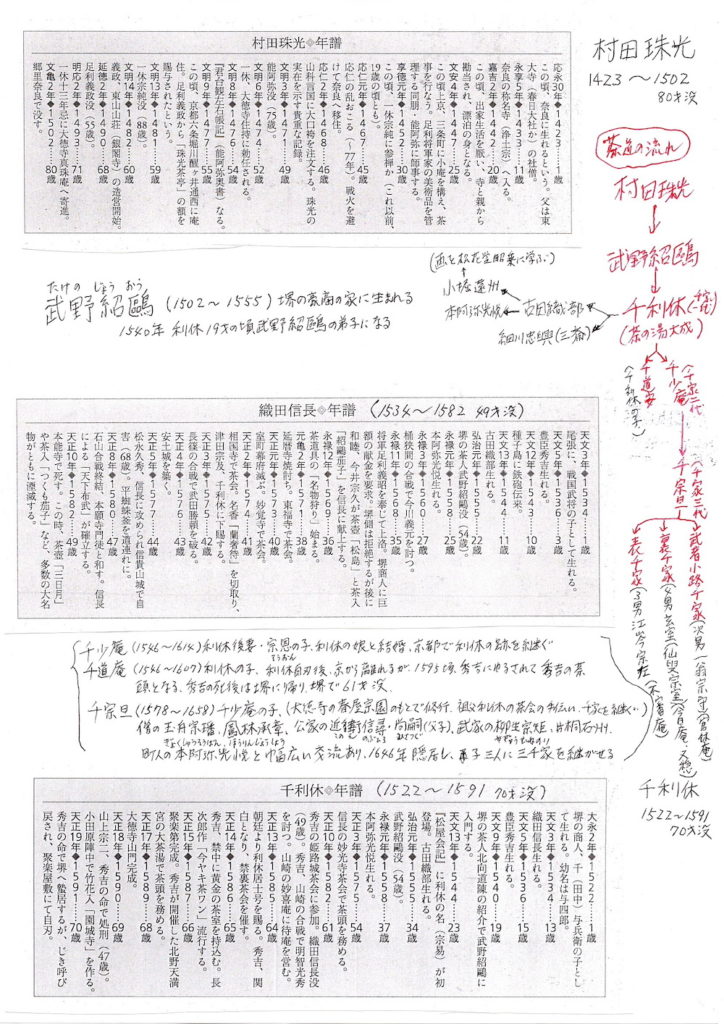 村田珠光◈年譜
応永30年◆1423……1歳
この頃、奈良に生れるという。父は東
大寺(春日大社か)の社僧。
永享5年◆1433……11歳
奈良の称名寺(浄土宗)へ入る。
嘉吉2年◆1442……20歳
この頃、出家生活を厭い、寺と親から
勘当され、漂泊の身となる。
文安4年◆1447……25歳
この頃上京、三条町に小庵を構え、茶
事を行なう。足利将軍家の美術品を管
理する同朋、能阿弥に師事する。
享徳元年◆1452……30歳
この頃、一休宗純に参禅か(これ以前、
19歳の頃とも)。
応仁元年◆1467……45歳
応仁の乱起こる(〜77年)。戦火を避
けて奈良へ移住。
応仁2年◆1468……46歳
山科言国に大口袴を注文する。珠光の
実在を示す貴重な記録。
文明3年◆1471……49歳
能阿弥没(75歳)。
文明6年◆1474……52歳
一休、大徳寺住持に勅任される。
文明8年◆1476……54歳
『君台観左右帳記』(能阿弥奥書)なる。
文明9年◆1477……55歳
この頃、京都六条堀川醒ヶ井通西に庵
住。足利義政から「珠光茶亭」の額を
賜与されたという。
文明13年◆1481……59歳
一休宗純没(88歳)。
文明14年◆1482……60歳
義政、東山山荘(銀閣寺)の造営開始。
延徳2年◆1490……68歳
足利義政没(55歳)。
明応2年◆1493……71歳
一休十三年忌に大徳寺真珠庵へ寄進。
文亀2年◆1502……80歳
郷里奈良で没す。
村田珠光
1423〜1502
80才没
茶道の流れ
村田珠光
武野紹鷗
千利休(千家一代)
(茶の湯大成)
千少庵
(千家二代
千道安
(千利休の子)
千宗旦
(千家三代
武者小路千家(次男 一翁宗守)(官休庵)
裏千家(4男玄室(仙叟宗室)(今日庵・又隠)
表千家(3男江岑宗左(不審庵)
古田織部
小堀遠州
(画を松花堂昭乗に学ぶ)
本阿弥光悦
細川忠興(三斎)
たけの じょう おう
武野紹鷗(1502〜1555)堺の豪商の家に生まれる
1540年 利休19才の頃武野紹鷗の弟子になる
織田信長◈年譜 (1534〜1582 49才没)
天文3年◆1534……1歳
尾張に、戦国武将の子として生れる。
天文5年◆1536……3歳
豊臣秀吉生れる。
天文12年◆1543……10歳
種子島に鉄砲伝来。
天文13年◆1544……11歳
古田織部生れる。
弘治元年◆1555……22歳
堺の茶人武野紹鷗没(54歳)。
永禄元年◆1558……25歳
本阿弥光悦生れる。
永禄3年◆1560……27歳
桶狭間の合戦で今川義元を討つ。
永禄11年◆1568……35歳
将軍足利義昭を奉じて上洛。堺商人に巨
額の献金を要求。堺側は拒絶するが後に
和睦、今井宗久が茶壺「松島」と茶入
「紹鷗茄子」を信長に献上する。
永禄12年◆1569……36歳
茶道具の「名物狩り」始まる。
元亀2年◆1571……38歳
延暦寺焼討ち。東福寺で茶会。
天正元年◆1573……40歳
室町幕府滅亡。妙覚寺で茶会。
天正2年◆1574……41歳
相国寺で茶会。名香「蘭奢待」を切取り、
津田宗及、千利休に下賜する。
天正3年◆1575……42歳
長篠の合戦で武田勝頼を破る。
天正4年◆1576……43歳
安土城を築く。
天正5年◆1577……44歳
松永久秀、信長に攻められ信貴山城で自
害(68歳)。平蜘蛛釜を道連れに。
天正8年◆1580……47歳
石山合戦終結、本願寺門徒と和す。信長
による「天下布武」が確立する。
天正10年◆1582……49歳
本能寺で死す。この時、茶壺「三日月」
や茶入「つくも茄子」など、多数の大名
物がともに湮滅する。
千少庵(1546〜1614)利休後妻・宗恩の子、利休の娘と結婚、京都で利休の跡を継ぐ
そうおん
千道庵(1546〜1607)利休の子、利休自刃後、京から離れるが1595頃、秀吉にゆるされて秀吉の茶
頭となる。秀吉の死後は堺に帰り、堺で61才没
千宗旦(1578〜1658)千少庵の子、(大徳寺の春屋宗園のもとで修行、祖父利休の茶会の手伝い、千家を継ぐ…
僧の玉舟宗璠、鳳林承章、公家の近衛信尋・尚嗣(父子)、武家の柳生宗矩、片桐石州、
ぎょくしゅうそうばん、ほうりんじょうしょう
町人の本阿弥光悦と幅広い交流あり、1646年隠居し、弟子三人に三千家を継がせる
千利休◈年譜 (1522〜1591 70才没)
大永2年◆1522……1歳
堺の商人、千(田中)与兵衛の子とし
て生れる。幼名は与四郎。
天文3年◆1534……13歳
織田信長生れる。
天文5年◆1536……15歳
豊臣秀吉生れる。
天文9年◆1540……19歳
堺の茶人北向道陳の紹介で武野紹鷗に
入門する。
天文13年◆1544……23歳
『松屋会記』に利休の名(宗易)が初
登場。古田織部生れる。
弘治元年◆1555……34歳
武野紹鷗没(54歳)。
永禄元年◆1558……37歳
本阿弥光悦生れる。
天正3年◆1575……54歳
信長の妙光寺茶会で茶頭を務める。
天正10年◆1582……61歳
秀吉の姫路城茶会に参加。織田信長没
(49歳)。秀吉、山崎の合戦で明智光秀
を討つ。山崎の妙喜庵に待庵を営む。
天正13年◆1585……64歳
朝廷より利休居士号を賜る。秀吉、関
白となり、禁裏茶会を催す。
天正14年◆1586……65歳
秀吉、禁中に黄金の茶室を持込む。長
次郎作「今ヤキ茶ワン」流行する。
天正15年◆1587……66歳
聚楽第完成。秀吉が開催した北野天満
宮の大茶湯で茶頭を務める。
天正17年◆1589……68歳
大徳寺山門完成。
天正18年◆1590……69歳
山上宗二、秀吉の命で処刑(47歳)。
小田原陣中で竹花入「園城寺」を作る。
天正19年◆1591……70歳
秀吉の命で堺へ蟄居するが、じき呼び
戻され、聚楽屋敷にて自刃。
千利休
1522〜1591
70才没